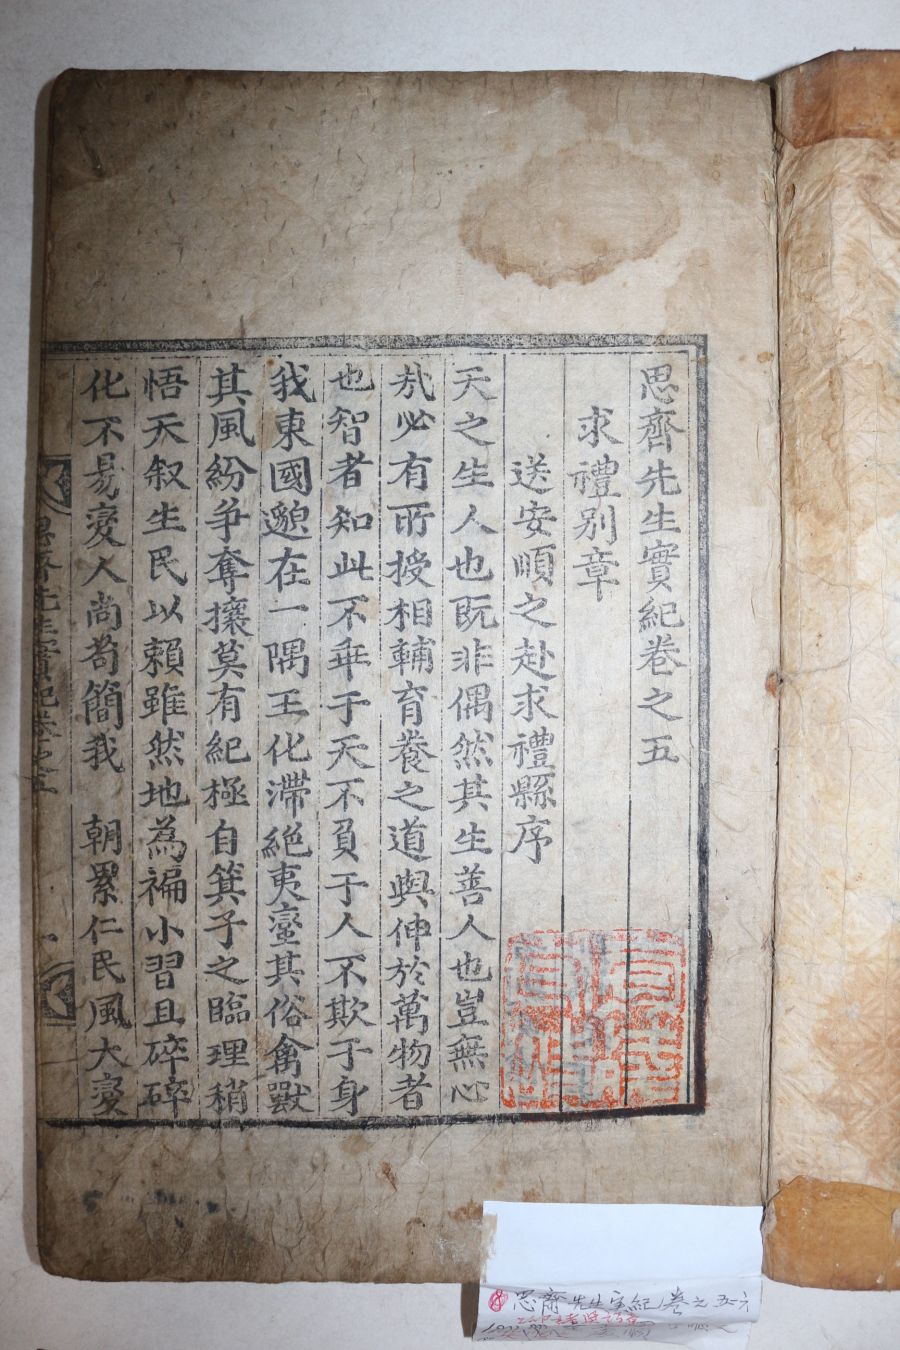 思齊先生實紀卷之五
求禮別章
送安順之赴求禮縣序
天之生人也旣非偶然其生善人也豈無心
㢤必有所授相輔育養之道與伸於萬物者
也智者知此不乖于天不負于人不欺于身
我東國邈在一隅王化滯絕夷蠻其俗禽獸
其風紛爭奪攘莫有紀極自箕子之臨理稍
悟天叙生民以賴雖然地為褊小習且碎碎
化不易變人尚苟簡我　朝累仁民風大變
思齊先生實紀卷之五
一
思齋先生실紀 卷之五-六